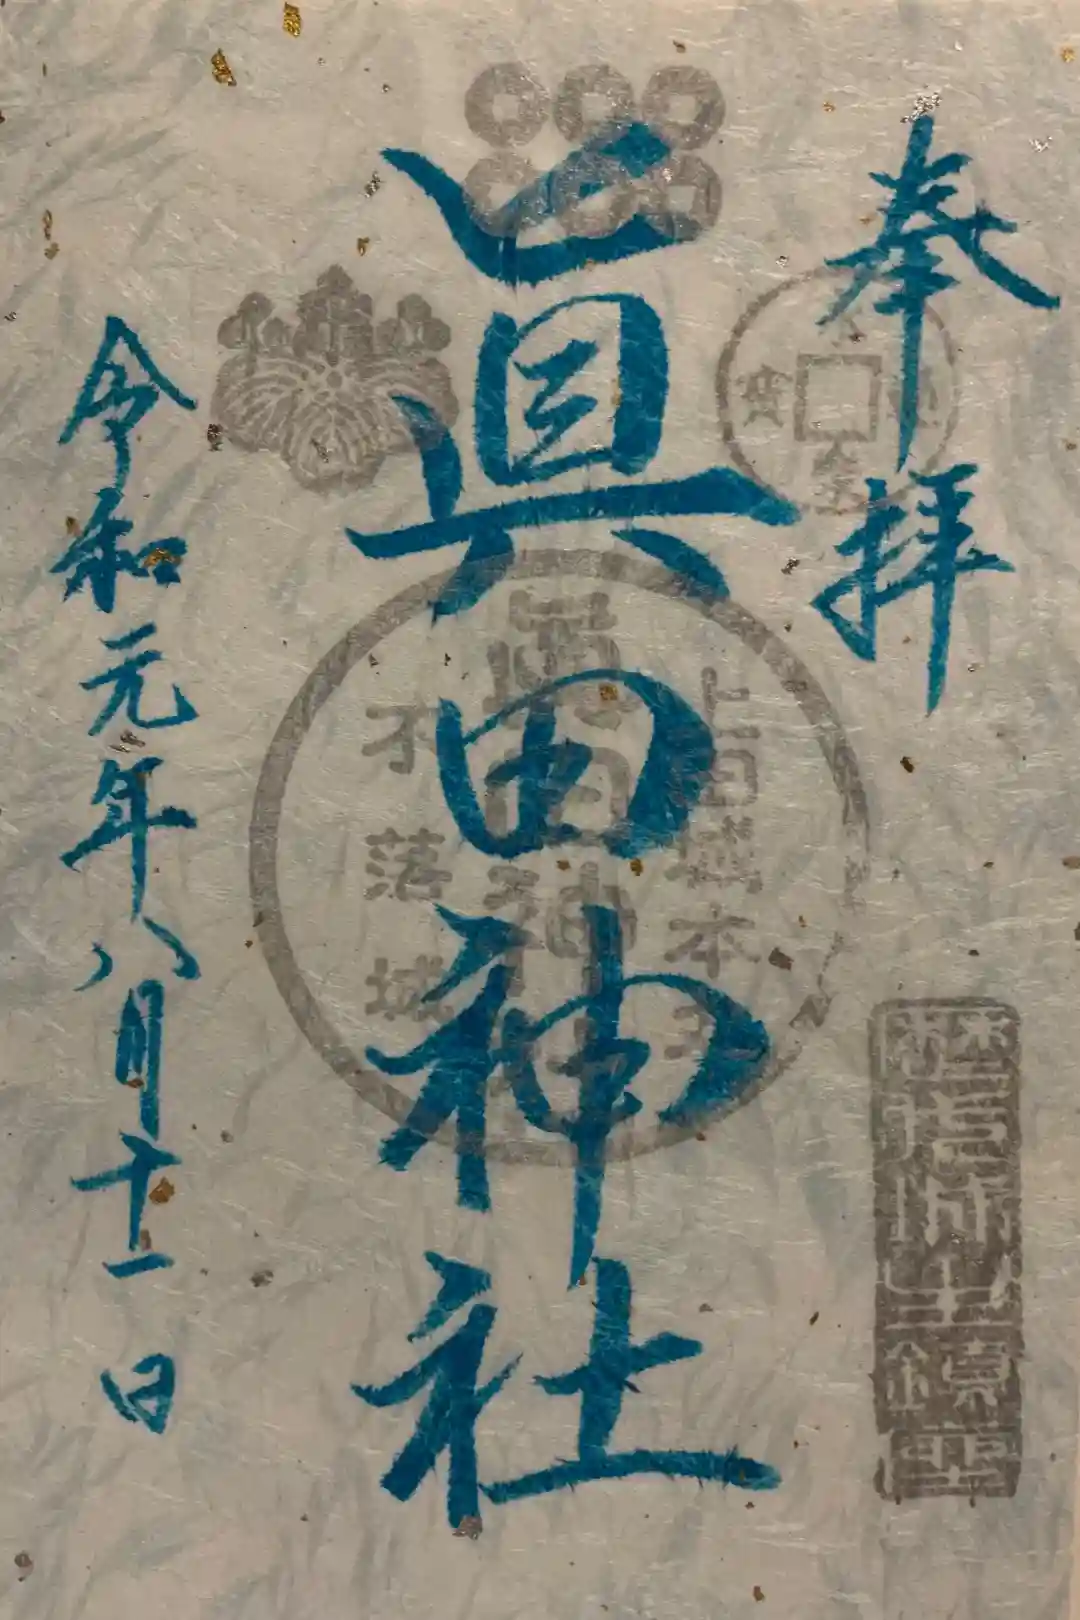 奉拝
眞田神社
令和元年八月十一日
上田城本丸
眞田神社
不落城